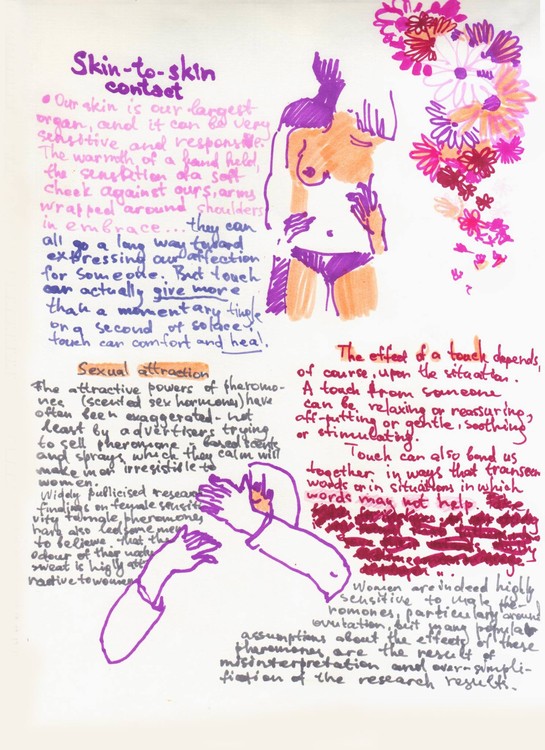 Skin-to-skin
contact
• Our skin is our largest
organ, and it can be very
sensitive and responsive.
The warmth of a hand held,
the sensation of a soft
cheek against ours, arms
wrapped around shoulders
in embrace... they can
all go a long way toward
expressing our affection
for someone. But touch
can actually give more
than a momentary tingle
or a second of solace,
touch can comfort and heal.
Sexual attraction
The attractive powers of pheromo-
nes (scented sex hormones) have
often been exaggerated - not
least by advertisers trying
to sell pheromone - based scents
and sprays, which they calim will
make men irresistible to
women.
Widely publicised research
findings on female sensiti-
vity to male pheromones
have also led some men
to believe that the
odour of their
sweat is highly att-
ractive to women
The effect of a touch depends,
of course, upon the situation.
A touch from someone
can be relaxing or reassuring,
off-putting or gentle, soothing
or stimulating.
Touch can also bond us
together in ways that transcen
words or in situations in which
words may not help.
Women are indeed highly
sensitive to male phe-
romones, particulary around
ovulation, but many popular
assumptions about the effects of these
pheromones are the result of
misinterpretation and over-simpli-
fication of the research results.